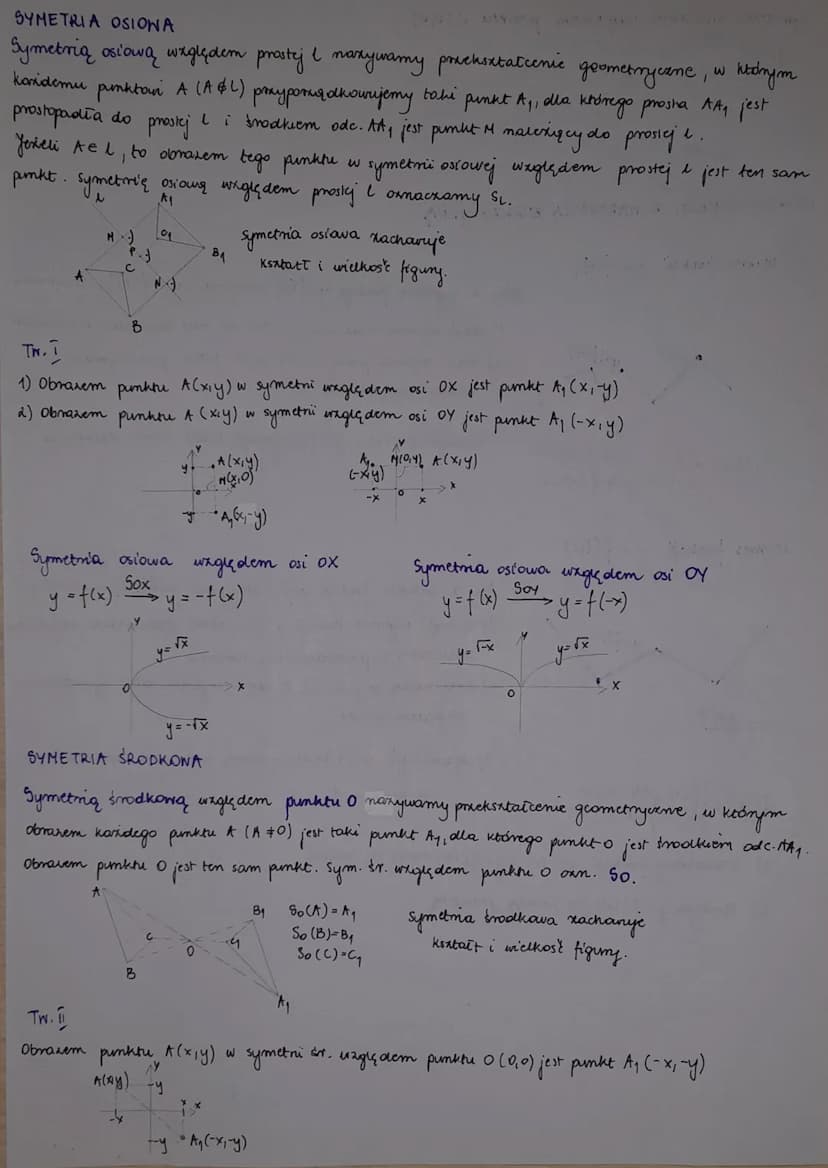 SYMETRIA OSIOWA
Symetrią osiową względem prostej l nazywamy przekształcenie geometryczne, w którym
każdemu punktowi A (A∉L) przyporządkowujemy taki punkt A₁, dla którego prosta AA₁ jest
prostopadła do prostej l i środkiem odc. AA₁ jest punkt M należący do prostej l.
Jeżeli A∈l, to obrazem tego punktu w symetrii osiowej względem prostej l jest ten sam
punkt. Symetrię osiową względem prostej l oznaczamy SL.
A₁
M
C₁
P
B₁
A
C
N
B
Symetria osiowa zachowuje
kształt i wielkość figury.
Tw. I
1) Obrazem punktu A(x,y) w symetrii względem osi OX jest punkt A₁(x,-y)
2) Obrazem punktu A(x,y) w symetrii względem osi OY jest punkt A₁(-x,y)
y
y A(x,y)
M(x,0)
o
-y A₁(x,-y)
y
A₁ M(0,y) A(x,y)
(-x,y)
-x 0 x x
Symetria osiowa względem osi OX
y = f(x) SOX→ y = -f(x)
y
y=√x
0 x
y=-√x
Symetria osiowa względem osi OY
y = f(x) SOY→ y = f(-x)
y
y=√-x y=√x
0 x
SYMETRIA ŚRODKOWA
Symetrią środkową względem punktu O nazywamy przekształcenie geometryczne, w którym
obrazem każdego punktu A (A≠0) jest taki punkt A₁, dla którego punkt O jest środkiem odc. AA₁.
Obrazem punktu O jest ten sam punkt. Sym. śr. względem punktu O ozn. SO.
A
B₁
C O C₁
B
A₁
S₀(A)=A₁
S₀(B)=B₁
S₀(C)=C₁
Symetria środkowa zachowuje
kształt i wielkość figury.
Tw. II
Obrazem punktu A(x,y) w symetrii śr. względem punktu O(0,0) jest punkt A₁(-x,-y)
y
A(x,y) y
-x x x
-y A₁(-x,-y)